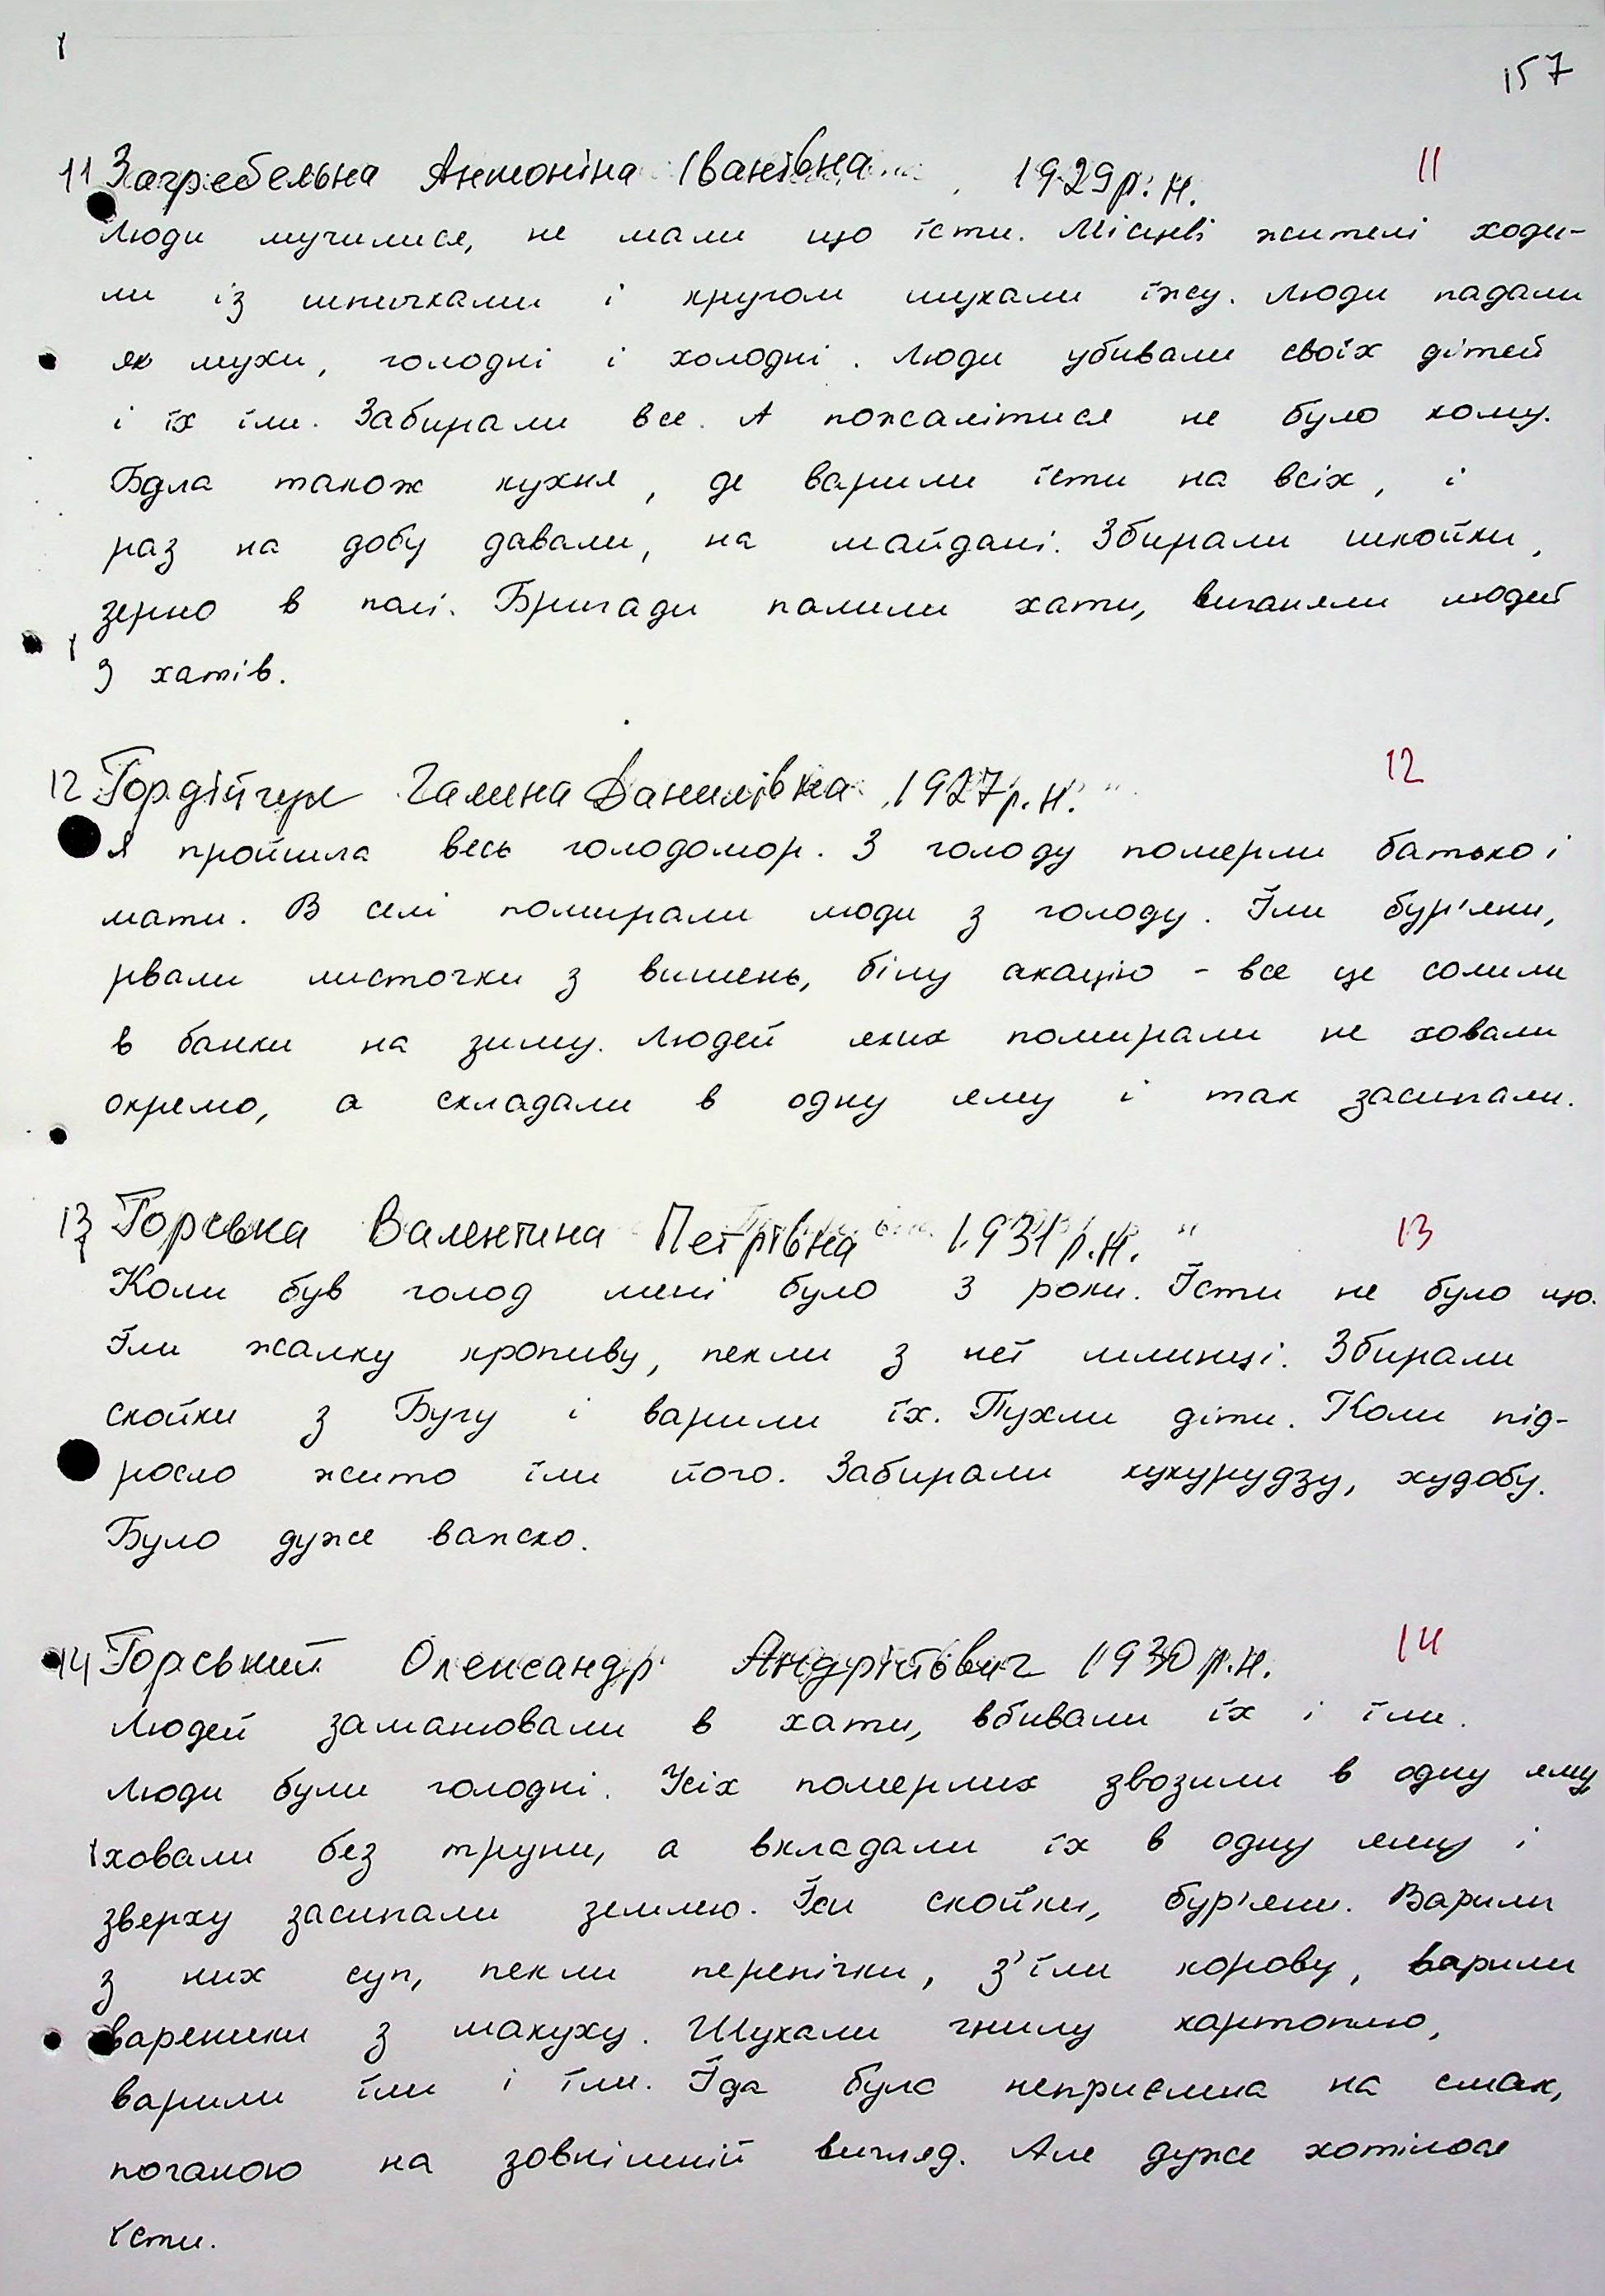 157
11 Загребельна Антоніна Іванівна 1929 р.н. 11
Люди мучилися, не мали що їсти. Місцеві жителі ходи-
ли із шпичками і кругом шукали їжу. Люди падали
як мухи, голодні і холодні. Люди убивали своїх дітей
і їх їли. Забирали все. А пожалітися не було кому.
Бдла також кухня, де варили їсти на всіх, і
раз на добу давали, на майдані. Збирали шкойки,
зерно в полі. Бригади палили хати, виганяли людей
з хатів.
12 Гордійчук Галина Данилівна 1927 р.н. 12
Я пройшла весь голодомор. З голоду померли батько і
мати. В селі помирали люди з голоду. Їли бур'яни,
рвали листочки з вишень, білу акацію - все це солили
в банки на зиму. Людей яких помирали не ховали
окремо, а складали в одну яму і так засипали.
13 Горевка Валентина Петрівна 1931 р.н. 13
Коли був голод мені було 3 роки. Їсти не було що.
Їли жалку кропиву, пекли з неї млинці. Збирали
скойки з Бугу і варили їх. Пухли діти. Коли під-
росло жито їли його. Забирали кукурудзу, худобу.
Було дуже важко.
14 Горський Олександр Андрійович 1930 р.н. 14
Людей заманювали в хати, вбивали їх і їли.
Люди були голодні. Усіх померлих звозили в одну яму
і ховали без труни, а вкладали їх в одну яму і
зверху засипали землею. Їли скойки, бур'яни. Варили
з них суп, пекли перепічки, з'їли корову, варили
вареники з макуху. Шукали гнилу картоплю,
варили їли і їли. Їда була неприємна на смак,
поганою на зовнішній вигляд. Але дуже хотілося
їсти.